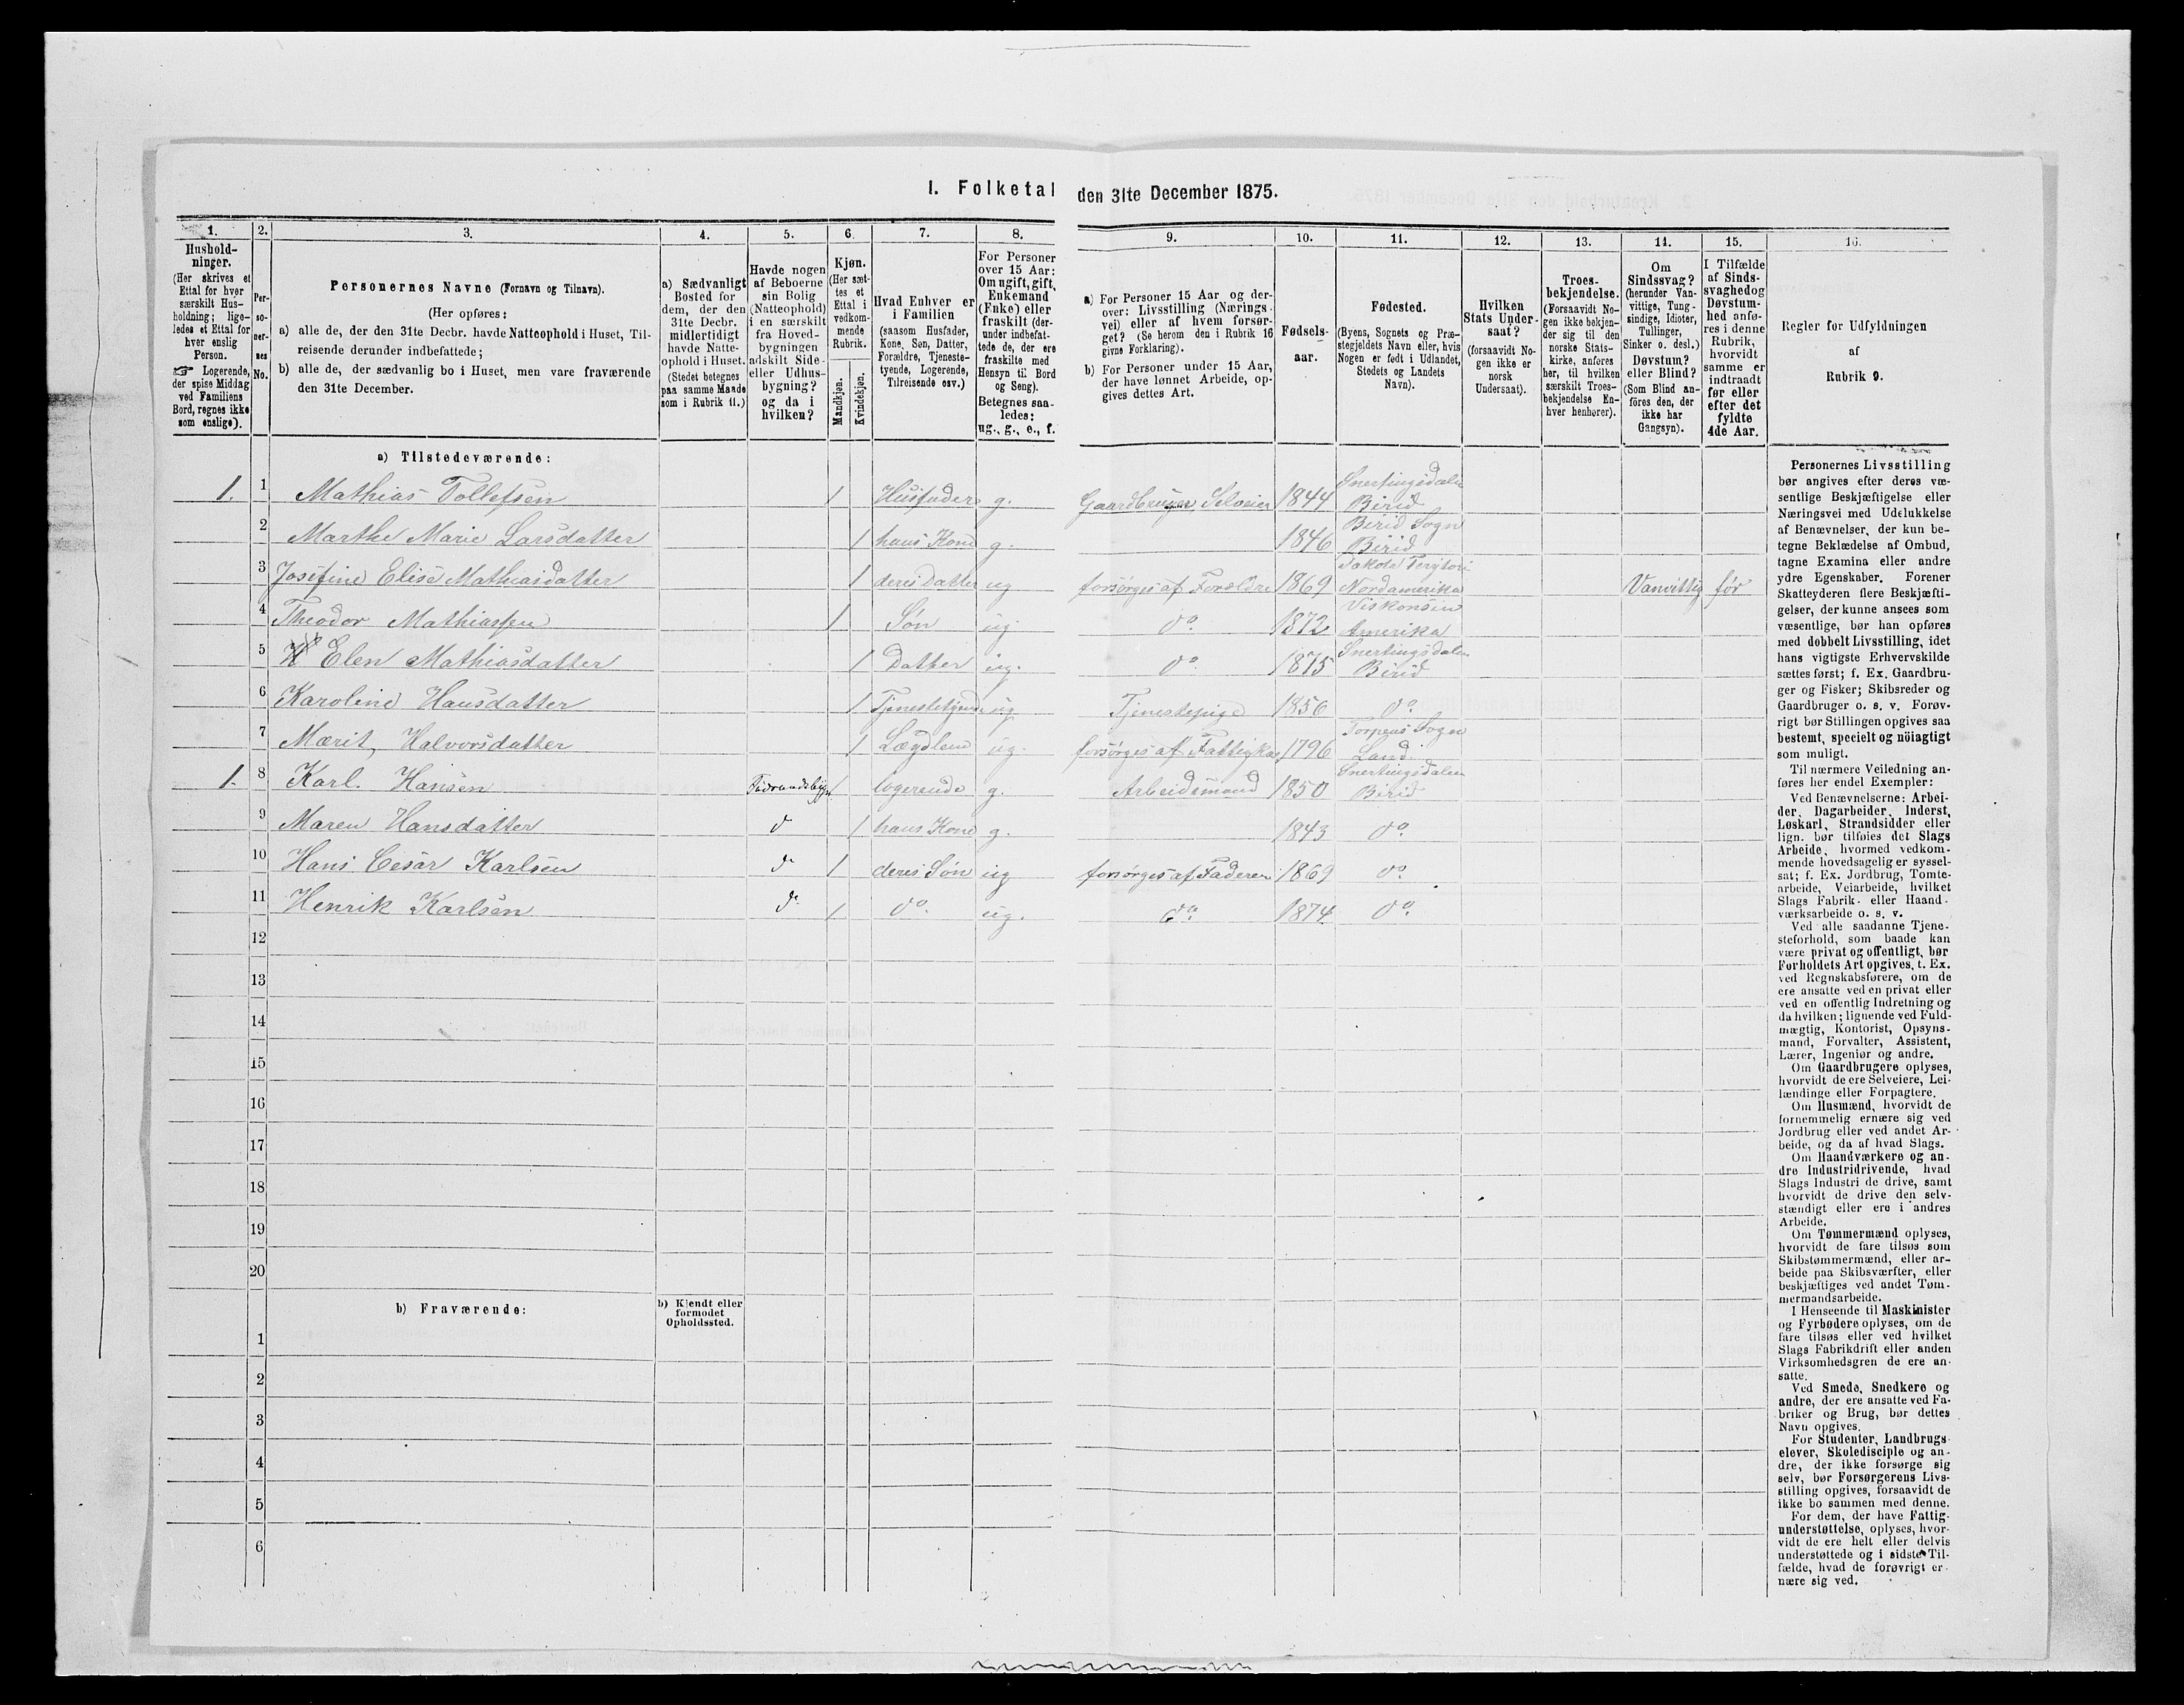 I. Folketal den 31te December 1875.
1.
Hushold-
ninger.
(Her skrives et
Ettal for hver
særskilt Hus-
holdning; lige-
ledes et Ettal for
hver enslig
Person.
☞ Logerende,
der spise Middag
ved Familiens
Bord, regnes ikke
som enslige).
2.
Per-
so-
ner-
nes
No.
3.
Personernes Navne (Fornavn og Tilnavn).
(Her opføres:
a) alle de, der den 31te Decbr. havde Natteophold i Huset, Til-
reisende derunder indbefattede;
b) alle de, der sædvanlig bo i Huset, men vare fraværende
den 31te December.
4.
a) Sædvanligt
Bosted for
dem, der den
31te Decbr.
midlertidigt
havde Natte-
ophold i Huset.
(Stedet betegnes
paa samme Maade
som i Rubrik 11.)
5.
Havde nogen
af Beboerne
sin Bolig
(Natteophold)
i en særskilt
fra Hoved-
bygningen
adskilt Side-
eller Udhus-
bygning?
og da i
hvilken?
6.
Kjøn.
(Her sæt-
tes et
Ettal i
vedkom-
mende
Rubrik.
Mandkjøn.
Kvindekjøn.
7.
Hvad Enhver er
i Familien
(saasom Husfader,
Kone, Søn, Datter,
Forældre, Tjeneste-
tyende, Logerende,
Tilreisende osv.)
8.
For Personer
over 15 Aar:
Om ugift, gift,
Enkemand
(Enke) eller
fraskilt (der-
under indbefat-
tede de, der ere
fraskilte med
Hensyn til Bord
og Seng).
Betegnes saa-
ledes:
ug., g., e., f.
9.
a) For Personer 15 Aar og der-
over: Livsstilling (Nærings-
vei) eller af hvem forsør-
get? (Se herom den i Rubrik 16
givne Forklaring).
b) For Personer under 15 Aar,
der have lønnet Arbeide, op-
gives dettes Art.
10.
Fødsels-
aar.
11.
Fødested.
(Byens, Sognets og Præ-
stegjeldets Navn eller, hvis
Nogen er født i Udlandet,
Stedets og Landets
Navn).
12.
Hvilken
Stats Under-
saat?
(forsaavidt No-
gen ikke er
norsk
Undersaat).
13.
Troes-
bekjendelse.
(Forsaavidt No-
gen ikke bekjen-
der sig til den
norske Stats-
kirke, anføres
her, til hvilken
særskilt Troes-
bekjendelse En-
hver henhører).
14.
Om
Sindssvag?
(herunder Van-
vittige, Tung-
sindige, Idioter,
Tullinger,
Sinker o. desl.)
Døvstum?
eller Blind?
(Som Blind an-
føres den, der
ikke har
Gangsyn).
15.
I Tilfælde
af Sinds-
svaghed og
Døvstum-
hed anfø-
res i denne
Rubrik,
hvorvidt
samme er
indtraadt
før eller
efter det
fyldte
4de Aar.
16.
Regler for Udfyldningen
af
Rubrik 9.
a) Tilstedeværende:
1. 1 Mathias Tollefsen 1 Husfader g. Gaardbruger, Selveier 1844 Snertingsdalen Birid
2 Marthe Marie Larsdatter 1 hans Kone g. 1846 Birid Sogn Birid
3 Josefine Elise Mathiasdatter 1 deres Datter ug forsørges af Forældre 1869 Dakota Terytori Nordamerika Vanvittig før
4 Theodor Mathiassen 1 Søn ug do. 1872 Viskonsin Amerika
5 Elen Mathiasdatter 1 Datter ug. do. 1875 Snertingsdalen Birid
6 Karoline Hansdatter 1 Tjenestetyende ug Tjenestepige 1856 do.
7 Marit Halvorsdatter 1 Lægdlem ug. forsørges af Fattigkas. 1796 Torpens Sogn Land
1. 8 Karl Hansen 1 logerende g. Arbeidsmand 1850 Snertingsdalen Birid
9 Maren Hansdatter d 1 hans Kone g. 1843 do.
10 Hans Cesar Karlsen do 1 deres Søn ug forsørges af Faderen 1869 do.
11 Henrik Karlsen do 1 do. ug. do. 1874 do.
12
13
14
15
16
17
18
19
20
b) Fraværende:
b) Kjendt eller
formodet
Opholdssted.
1
2
3
4
5
6
Personernes Livsstilling
bør angives efter deres væ-
sentlige Beskjæftigelse eller
Næringsvei med Udelukkelse
af Benævnelser, der kun be-
tegne Beklædelse af Ombud,
tagne Examina eller andre
ydre Egenskaber. Forener
Skatteyderen flere Beskjæfti-
gelser, der kunne ansees som
væsentlige, bør han opføres
med dobbelt Livsstilling, idet
hans vigtigste Erhvervskilde
sættes først; f. Ex. Gaardbru-
ger og Fisker; Skibsreder og
Gaardbruger o. s. v. Forøv-
rigt bør Stillingen opgives saa
bestemt, specielt og nöiagtigt
som muligt.
Til nærmere Veiledning an-
føres her endel Exempler:
Ved Benævnelserne: Arbei-
der, Dagarbeider, Inderst,
Løskarl, Strandsidder eller
lign. bør tilføies det Slags
Arbeide, hvormed vedkom-
mende hovedsagelig er syssel-
sat; f. Ex. Jordbrug, Tomte-
arbeide, Veiarbeide, hvilket
Slags Fabrik- eller Haand-
værksarbeide o. s. v.
Ved alle saadanne Tjene-
steforhold, som baade kan
være privat og offentligt, bør
Forholdets Art opgives, t. Ex.
ved Regnskabsførere, om de
ere ansatte ved en privat eller
ved en offentlig Indretning og
da hvilken; lignende ved Fuld-
mægtig, Kontorist, Opsyns-
mand, Forvalter, Assistent,
Lærer, Ingeniør og andre.
Om Gaardbrugere oplyses,
hvorvidt de ere Selveiere, Lei-
lændinge eller Forpagtere.
Om Husmænd, hvorvidt de
fornemmelig ernære sig ved
Jordbrug eller ved andet Ar-
beide, og da af hvad Slags.
Om Haandværkere og an-
dre Industridrivende, hvad
Slags Industri de drive, samt
hvorvidt de drive den selv-
stændigt eller ere i andres
Arbeide.
Om Tømmermænd oplyses,
hvorvidt de fare tilsøs som
Skibstømmermænd, eller ar-
beide paa Skibsværfter, eller
beskjæftiges ved andet Tøm-
mermandsarbeide.
I Henseende til Maskinister
og Fyrbødere oplyses, om de
fare tilsøs eller ved hvilket
Slags Fabrikdrift eller anden
Virksomhedsgren de ere an-
satte.
Ved Smede, Snedkere og
andre, der ere ansatte ved Fa-
briker og Brug, bør dettes
Navn opgives.
For Studenter, Landbrugs-
elever, Skoledisciple og an-
dre, der ikke forsørge sig
selv, bør Forsørgerens Livs-
stilling opgives, forsaavidt de
ikke bo sammen med denne.
For dem, der have Fattig-
understøttelse, oplyses, hvor-
vidt de ere helt eller delvis
understøttede og i sidste Til-
fælde, hvad de forøvrigt er-
nære sig ved.